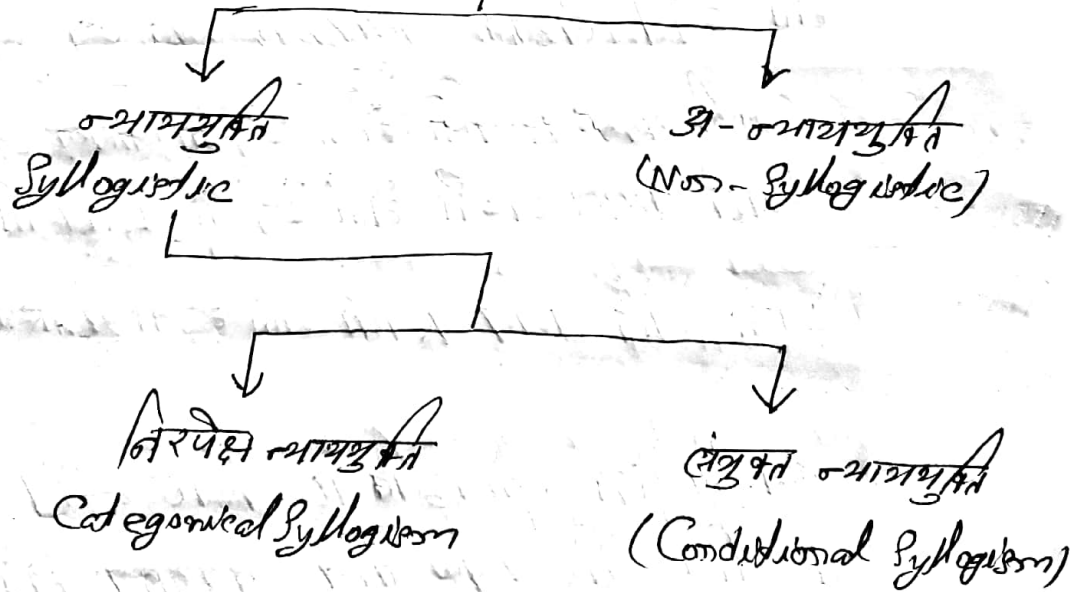 न्याययुक्ति
Syllogistic
अ-न्याययुक्ति
(Non-Syllogistic)
निरपेक्ष न्याययुक्ति
Categorical Syllogism
संयुक्त न्याययुक्ति
(Conditional Syllogism)